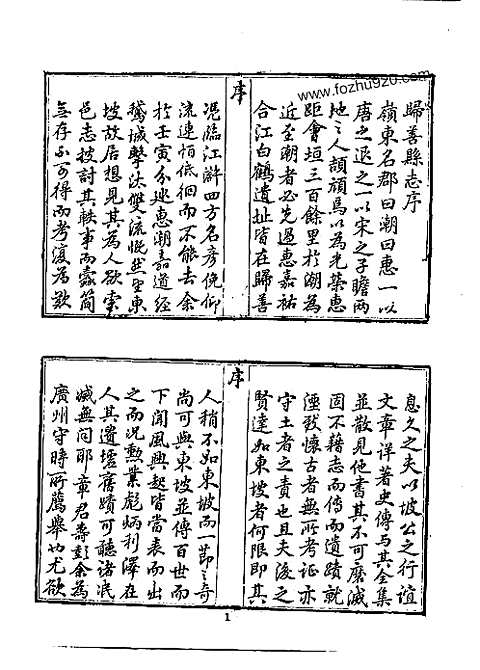 www.fozhu920.com
歸善縣志序
嶺東名郡曰潮曰惠一以
唐之退之一以宋之子瞻兩
地之人頡頏焉以為光榮惠
距會垣三百餘里於潮為
近至潮者必先過惠嘉祐
合江白鶴遺址皆在歸善
序
混臨江滸四方名彥俛仰
流連怕低徊而不能去余
於壬寅分巡惠潮嘉道經
鵞城擊汰雙流慨然望東
坡故居想見其為人欲索
邑志披討其軼事而蠹簡
無存不可得而考濅為歎
息久之夫以坡公之行誼
文章詳著史傳与其全集
並散見他書其不可磨滅
固不藉志而傳而遺蹟就
湮致懷古者無所考证亦
守土者之責也且夫後之
賢達如東坡者何限即其
序
人稍不如東坡而一節之奇
尚可與東坡並傳百世而
下聞風興起皆當表而出
之而況勲業彪炳利澤在
人其遺壇舊蹟可聽諸泯
滅無问耶章君壽彭余為
廣州守時所薦舉也尤欲
1